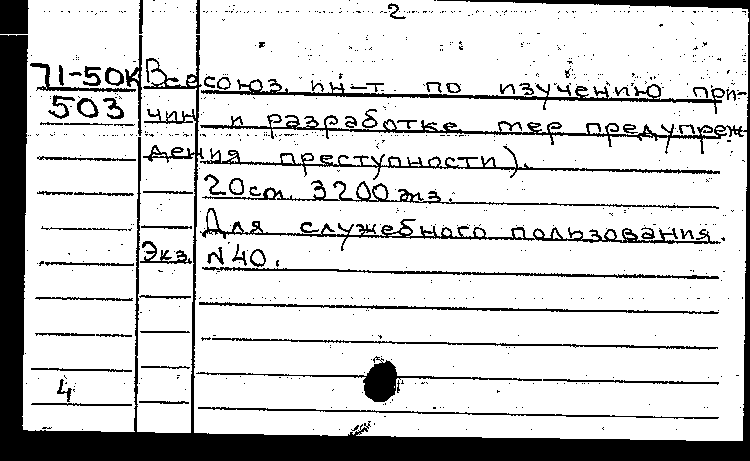 2
71-50К Всесоюз. ин-т по изучению при-
503 чин и разработке мер предупреж-
дения преступности).
20см. 3200 экз.
Для служебного пользования.
Экз. N 40.
4